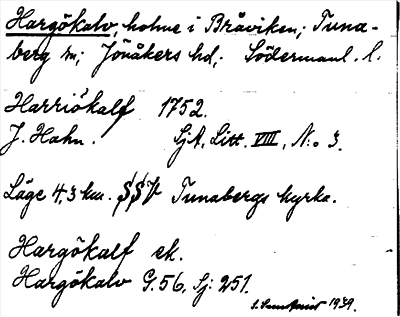 Hargökalv, holme i Bråviken; Tuna-
berg sn; Jönåkers hd; Södermanl. l.
Harriökalf 1752.
J. Hahn. SjA, Litt. VIII, N:o 3.
Läge 4,3 km. SSV Tunabergs kyrka.
Hargökalf ek.
Hargökalv G. 56, Sj: 251.
1939.